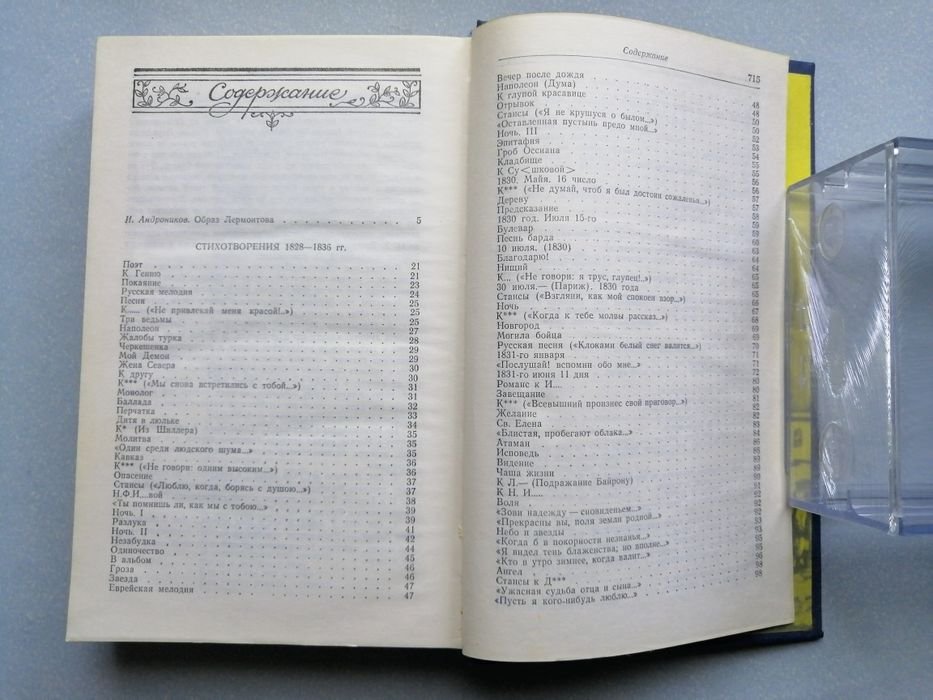 Содержание
И. Андроников. Образ Лермонтова 5
СТИХОТВОРЕНИЯ 1828—1836 гг.
Поэт 21
К Гению 21
Покаяние 23
Русская мелодия 24
Песня 25
К..... («Не привлекай меня красой!..») 25
Три ведьмы 25
Наполеон 27
Жалобы турка 28
Черкешенка 29
Мой Демон 29
Жена Севера 30
К другу 30
К*** («Мы снова встретились с тобой...») 31
Монолог 31
Баллада 32
Перчатка 33
Дитя в люльке 34
К* (Из Шиллера) 35
Молитва 35
«Один среди людского шума...» 35
Кавказ 36
К*** («Не говори: одним высоким...») 36
Опасение 37
Стансы («Люблю, когда, борясь с душою...») 37
Н.Ф.И...вой 38
«Ты помнишь ли, как мы с тобою...» 39
Ночь. I 39
Разлука 41
Ночь. II 42
Незабудка 44
Одиночество 45
В альбом 46
Гроза 46
Звезда 47
Еврейская мелодия 47
Содержание 715
Вечер после дождя 48
Наполеон (Дума) 48
К глупой красавице 50
Отрывок 50
Стансы («Я не крушуся о былом...») 52
«Оставленная пустынь предо мной...» 53
Ночь. III 54
Эпитафия 55
Гроб Оссиана 55
Кладбище 56
К Су<шковой> 56
1830. Майя. 16 число 57
К*** («Не думай, чтоб я был достоин сожаленья...») 57
Дереву 58
Предсказание 59
1830 год. Июля 15-го 59
Булевар 60
Песнь барда 63
10 июля. (1830) 64
Благодарю! 64
Нищий 65
К... («Не говори: я трус, глупец!..») 65
30 июля.— (Париж). 1830 года 66
Стансы («Взгляни, как мой спокоен взор...») 67
Ночь 68
К*** («Когда к тебе молвы рассказ...») 69
Новгород 70
Могила бойца 71
Русская песня («Клоками белый снег валится...») 71
1831-го января 72
«Послушай! вспомни обо мне...» 80
1831-го июня 11 дня 80
Романс к И.... 81
Завещание 82
К*** («Всевышний произнес свой приговор...») 82
Желание 83
Св. Елена 84
«Блистая, пробегают облака...» 86
Атаман 86
Исповедь 89
Видение 89
Чаша жизни 90
К Л.— (Подражание Байрону) 91
К Н. И..... 92
Воля 92
«Зови надежду — сновиденьем...» 92
«Прекрасны вы, поля земли родной...» 93
Небо и звезды 93
«Когда б в покорности незнанья...» 95
«Я видел тень блаженства; но вполне...» 95
«Кто в утро зимнее, когда валит...» 96
Ангел 98
Стансы к Д*** 98
«Ужасная судьба отца и сына...»
«Пусть я кого-нибудь люблю...»